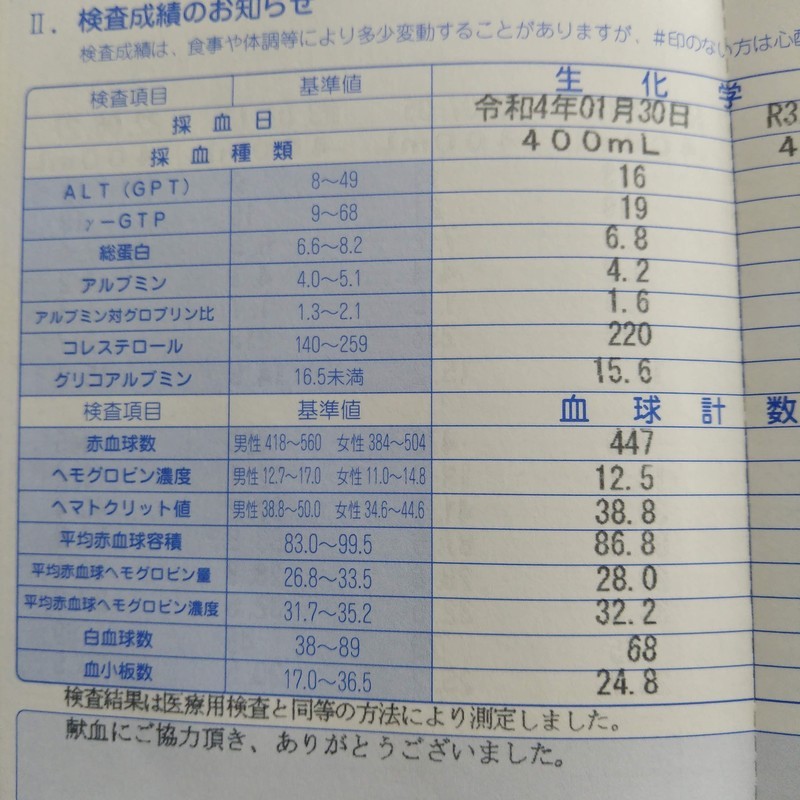 Ⅱ. 検査成績のお知らせ
検査成績は、食事や体調等により多少変動することがありますが、#印のない方は心配
検査項目 基準値 生化学
採血日 令和4年01月30日 R3
採血種類 400mL 4
ALT(GPT) 8〜49 16
γ-GTP 9〜68 19
総蛋白 6.6〜8.2 6.8
アルブミン 4.0〜5.1 4.2
アルブミン対グロブリン比 1.3〜2.1 1.6
コレステロール 140〜259 220
グリコアルブミン 16.5未満 15.6
検査項目 基準値 血球計数
赤血球数 男性 418〜560 女性 384〜504 447
ヘモグロビン濃度 男性 12.7〜17.0 女性 11.0〜14.8 12.5
ヘマトクリット値 男性 38.8〜50.0 女性 34.6〜44.6 38.8
平均赤血球容積 83.0〜99.5 86.8
平均赤血球ヘモグロビン量 26.8〜33.5 28.0
平均赤血球ヘモグロビン濃度 31.7〜35.2 32.2
白血球数 38〜89 68
血小板数 17.0〜36.5 24.8
検査結果は医療用検査と同等の方法により測定しました。
献血にご協力頂き、ありがとうございました。